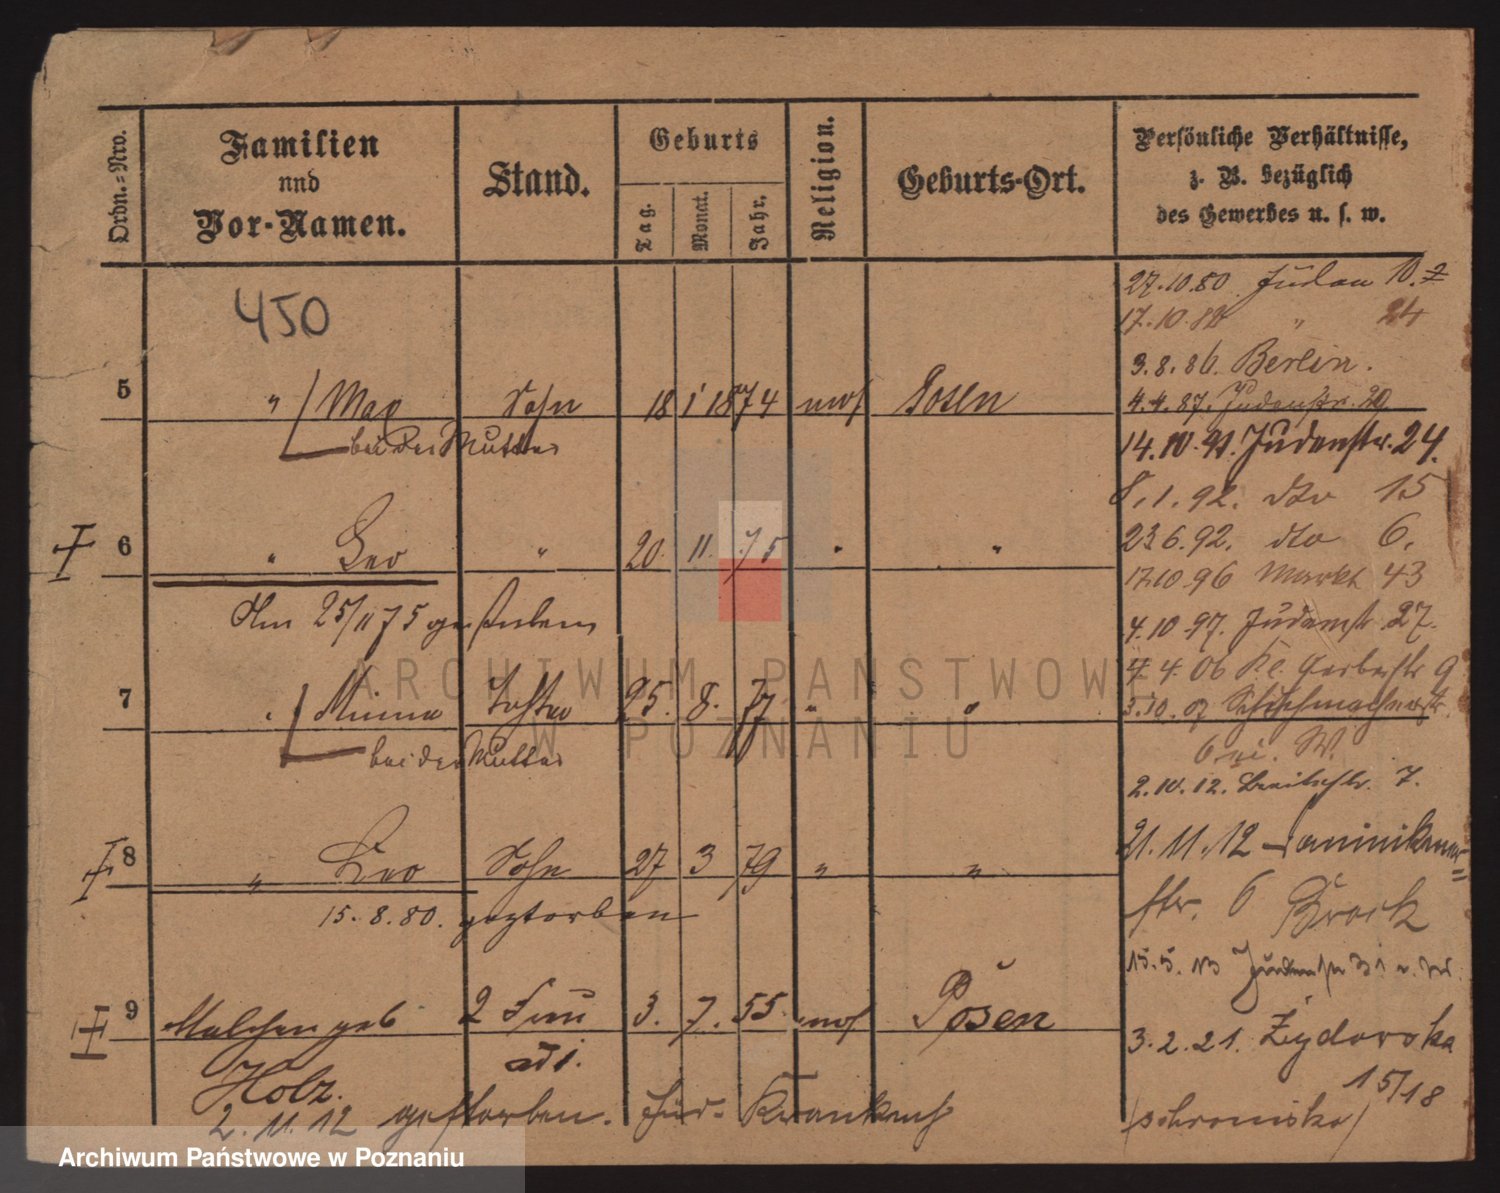 Ordn.-Nro.
Familien
und
Vor-Namen.
Stand.
Geburts
Tag.
Monat.
Jahr.
Religion.
Geburts-Ort.
Persönliche Verhältnisse,
z. B. bezüglich
des Gewerbes u. s. w.
450
27.10.80 Juden 10.
17.10.82 " 24
3.8.86. Berlin.
5 " Max Sohn 18 1 1874 mos Posen
4.4.87. Judenstr. 20
bei der Mutter
14.10.91. Judenstr. 24.
8.1.92. dto 15
6 " Leo " 20. 11. 75 " "
23 6.92. dto 6.
17.10.96 Markt 43
Am 25/11 75 gestorben
4.10.97. Judenstr. 27.
4.4.06 Kl. Gerberstr 9
7 " Minna Tochter 25. 8. 77 " "
3.10.07 Schuhmacherstr.
6 W.
bei der Mutter
2.10.12. Breitestr. 7.
8 " Leo Sohn 27 3 79 " "
21.11.12 Dominikaner=
str. 6 Brock
15.8.80. gestorben
15.5.13 Judenstr 31
9 Malchen geb 2 Frau 3. 7. 55. mos Posen
Holz.
3.2.21. Żydowska
15/18
2.11.12 gestorben. Jüd. Krankenh
(schronisko)
ARCHIWUM PAŃSTWOWE
W POZNANIU
Archiwum Państwowe w Poznaniu